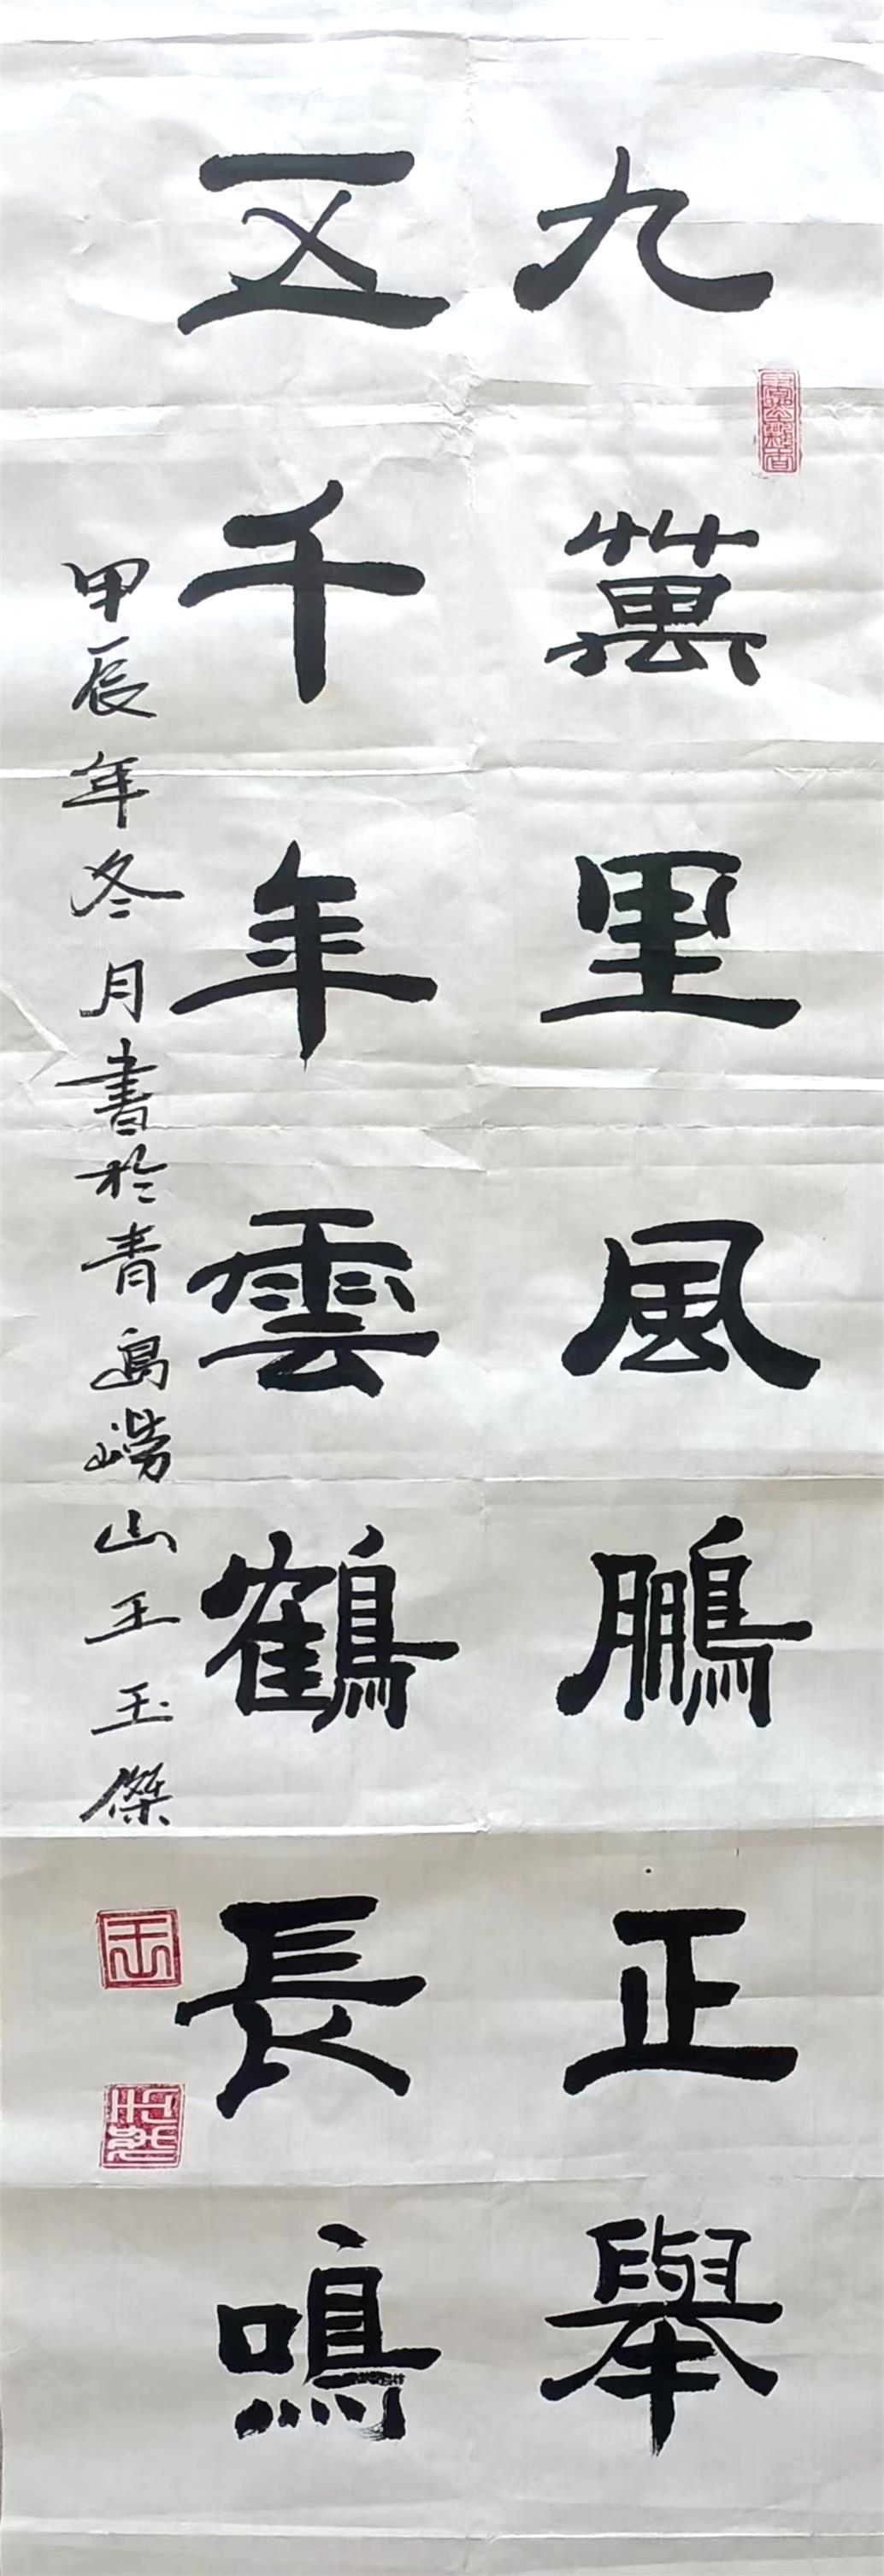 九萬里風鵬正舉
五千年雲鶴長鳴
甲辰年冬月書於青島嶗山王玉傑